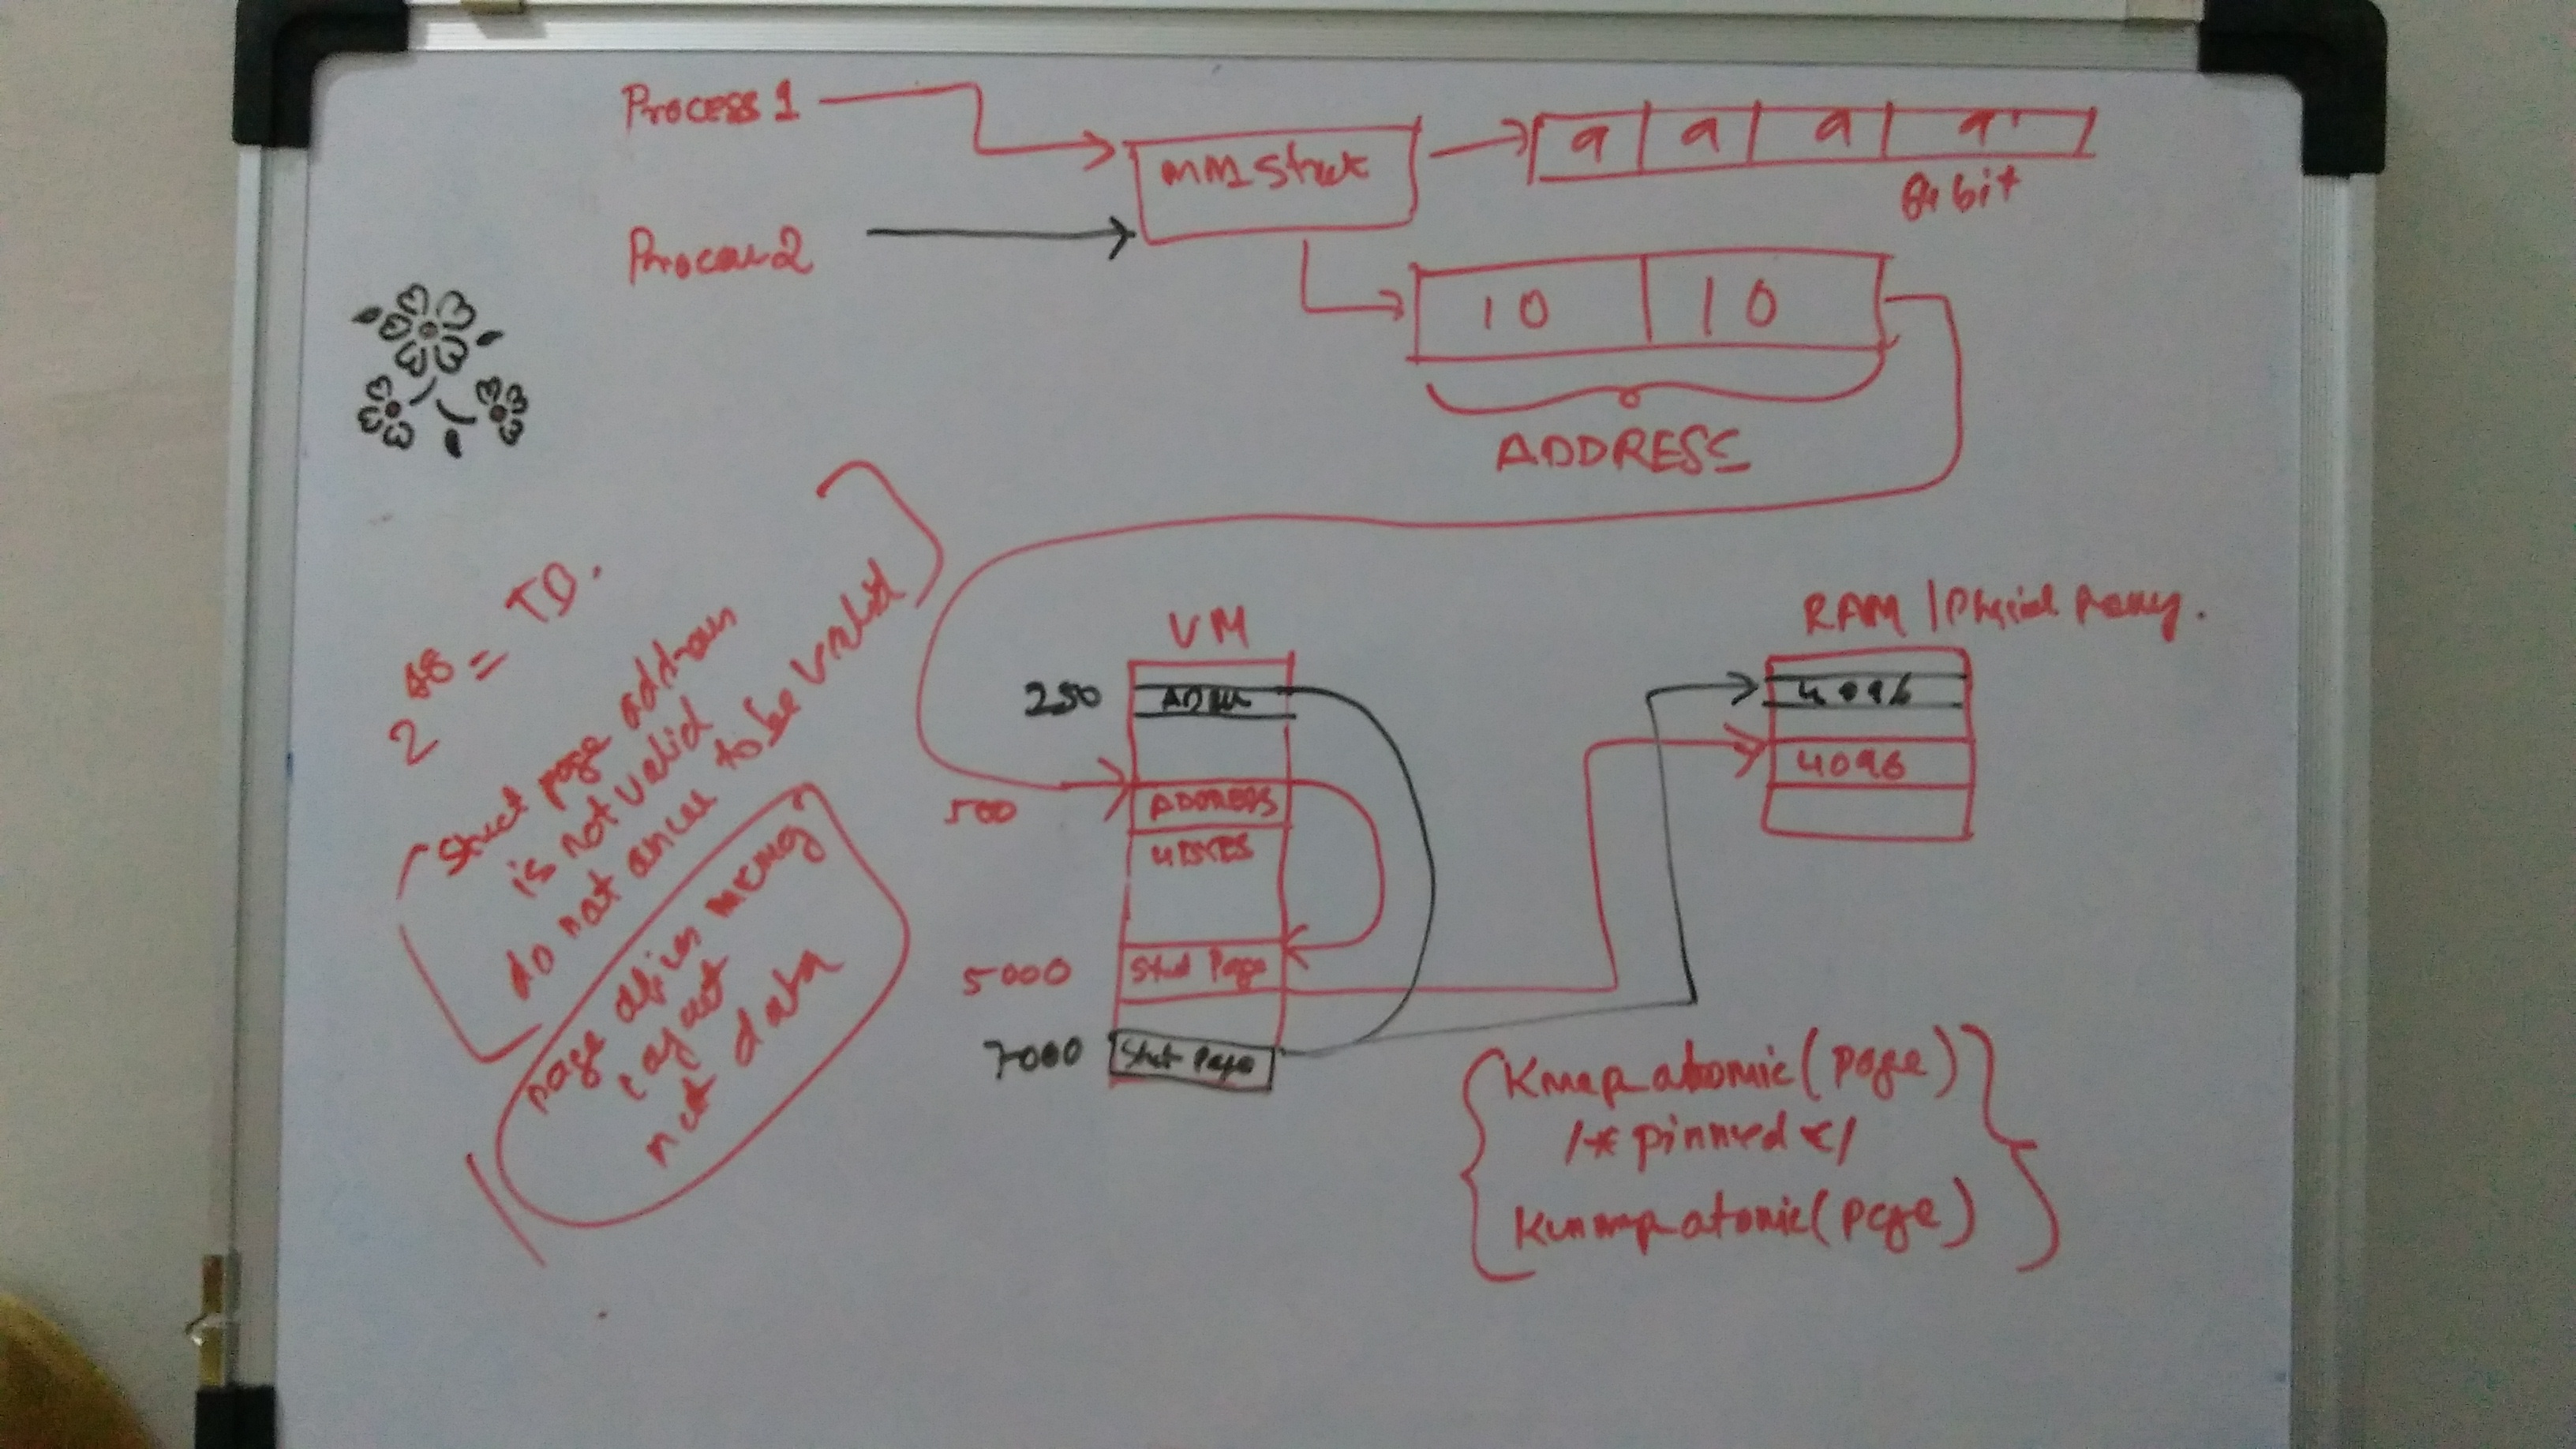 Process 1
mm struct
9 9 9 9
64 bit
Process 2
10 10
ADDRESS
2^48 = TB.
struct page address
is not valid
do not ances to be valid
page align memory
layout
not data
VM
250
500 ADDRESS
4BYTES
5000 Struct Page
7000 Struct Page
RAM / Physical
4096
4096
Kmap_atomic(page)
/* pinned */
Kunmap_atomic(page)